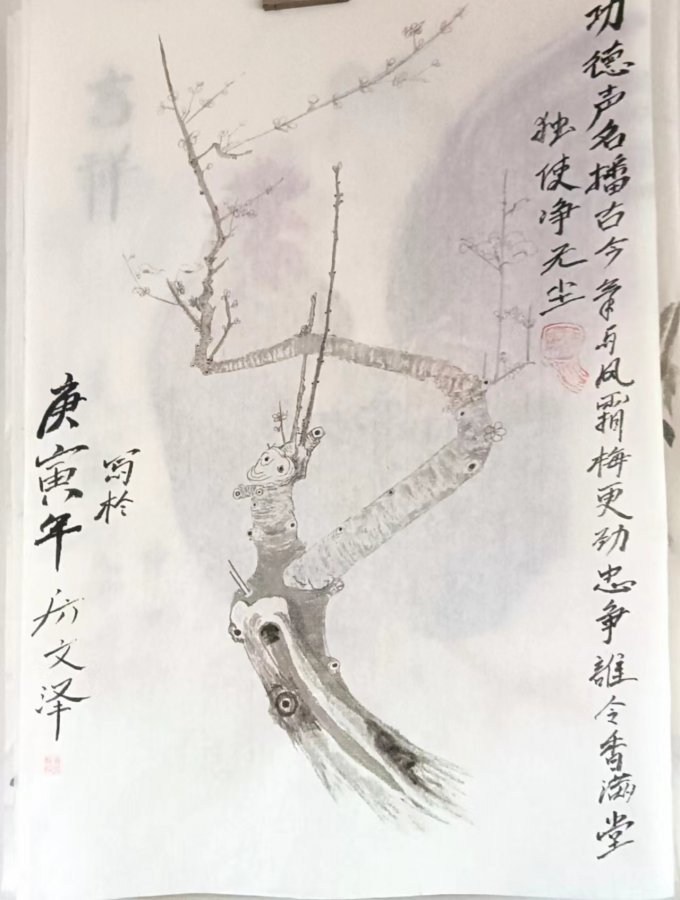 功德声名播古今笔与风霜梅更劲忠争誰令香满堂
独使净无尘
庚寅年
写於
文泽